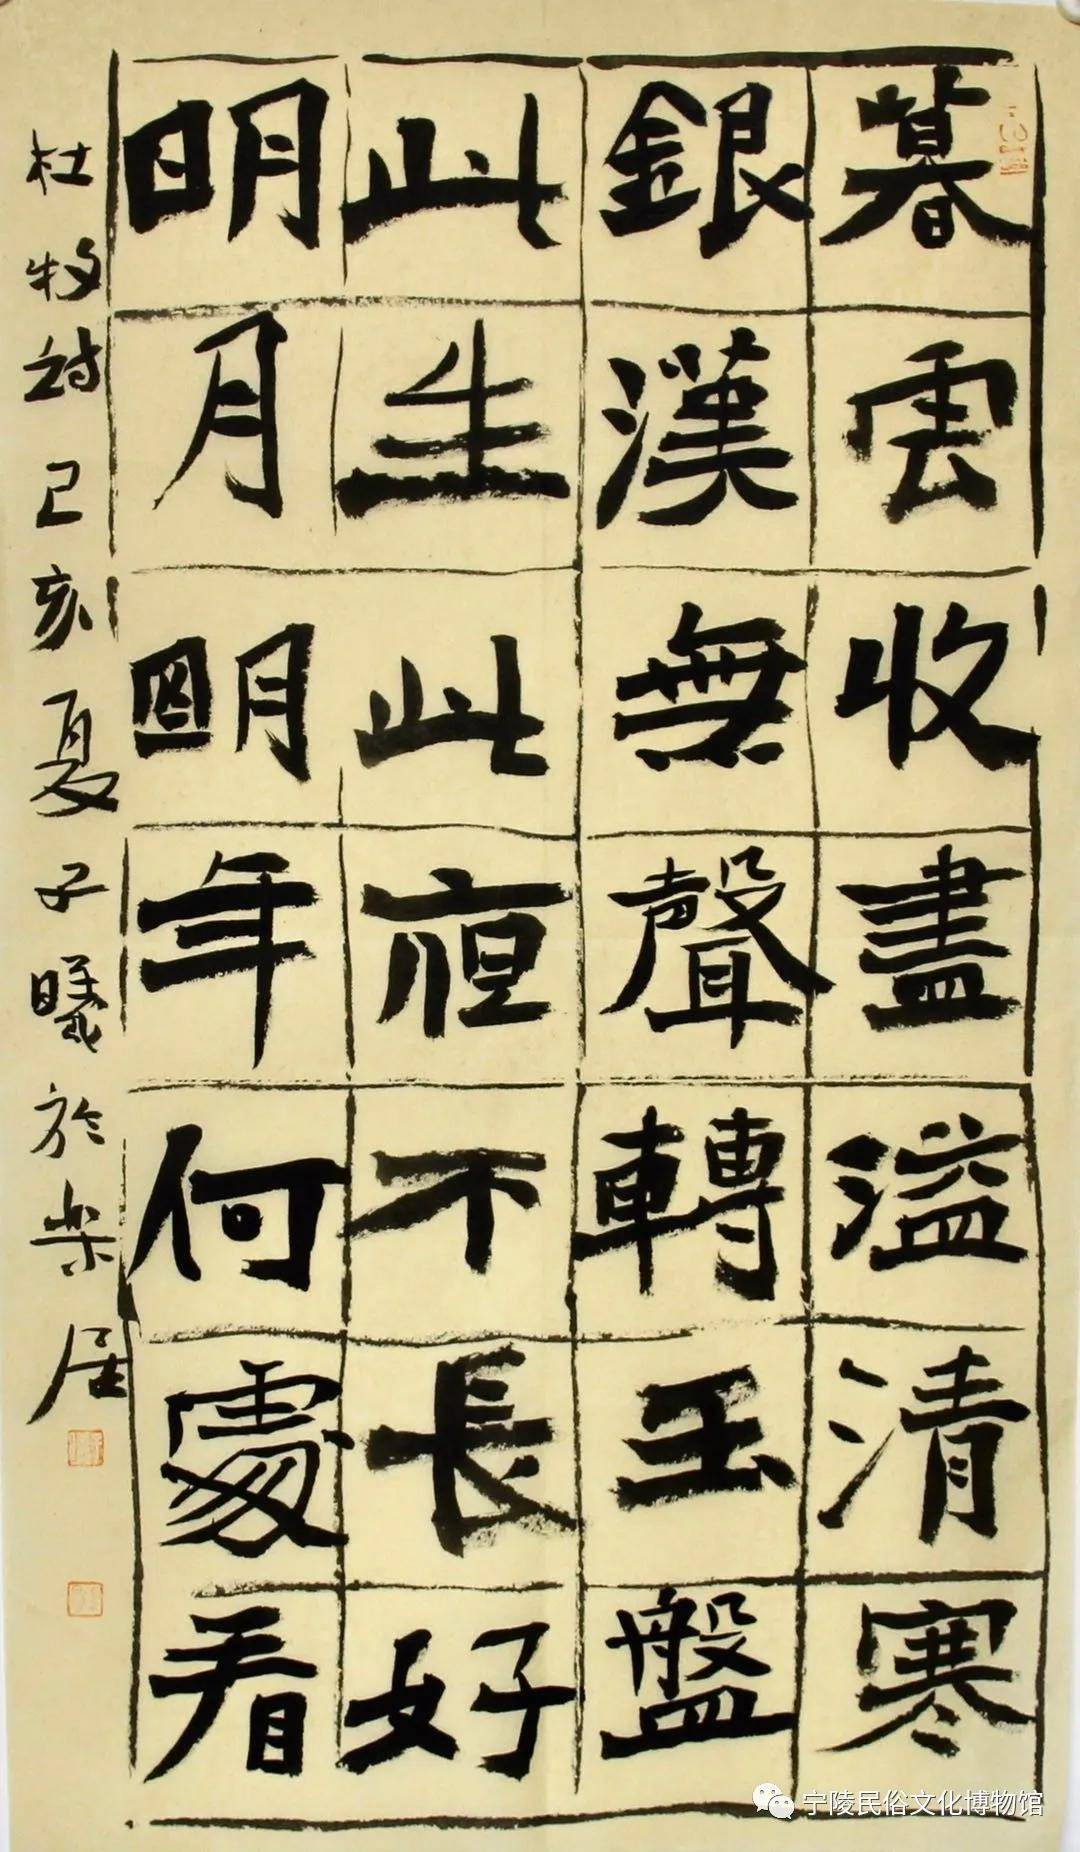 暮雲收盡溢清寒
銀漢無聲轉玉盤
此生此夜不長好
明月明年何處看
杜牧詩己亥夏子曦於樂居
宁陵民俗文化博物馆